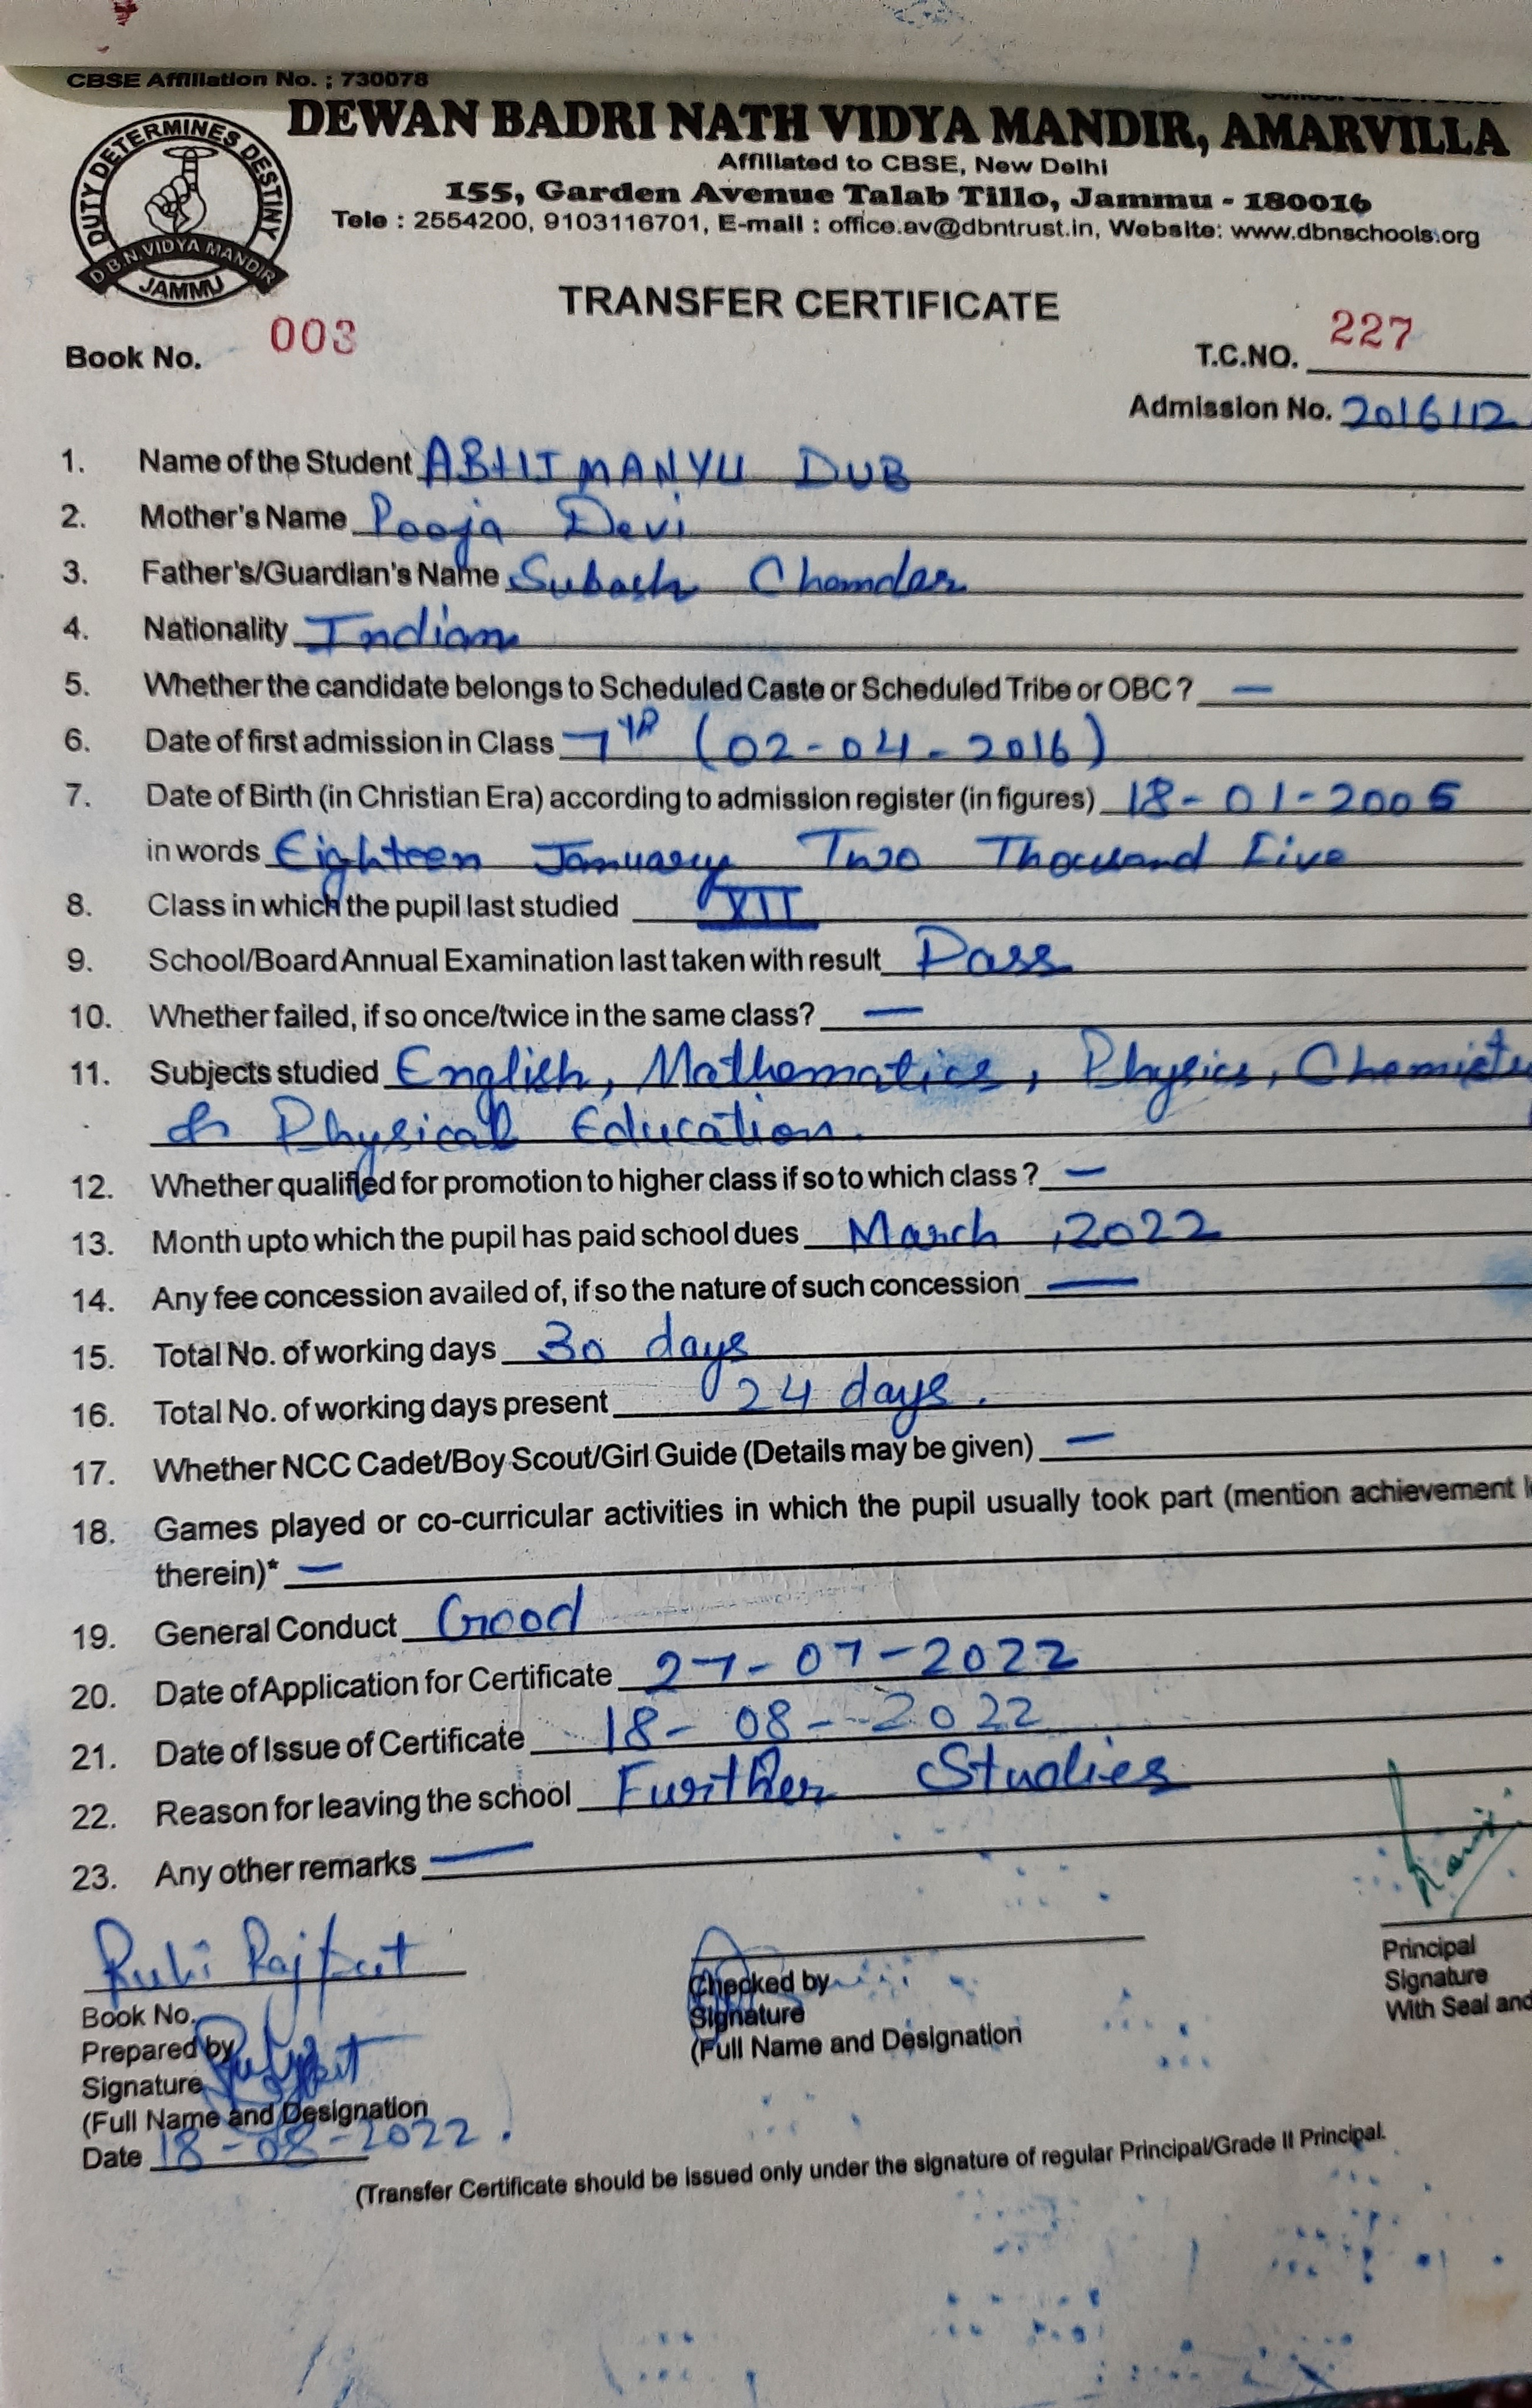 CBSE Affiliation No. ; 730078
DEWAN BADRI NATH VIDYA MANDIR, AMARVILLA
Affiliated to CBSE, New Delhi
155, Garden Avenue Talab Tillo, Jammu - 180016
Tele : 2554200, 9103116701, E-mail : office.av@dbntrust.in, Website: www.dbnschools.org
DUTY DETERMINES DESTINY
D.B.N. VIDYA MANDIR
JAMMU
TRANSFER CERTIFICATE
Book No. 003
T.C.NO. 227
Admission No. 2016112
1. Name of the Student ABHIMANYU DUB
2. Mother's Name Pooja Devi
3. Father's/Guardian's Name Subash Chander
4. Nationality Indian
5. Whether the candidate belongs to Scheduled Caste or Scheduled Tribe or OBC ? —
6. Date of first admission in Class 7th (02-04-2016)
7. Date of Birth (in Christian Era) according to admission register (in figures) 18-01-2005
in words Eighteen January Two Thousand Five
8. Class in which the pupil last studied XII
9. School/Board Annual Examination last taken with result Pass
10. Whether failed, if so once/twice in the same class? —
11. Subjects studied English, Mathematics, Physics, Chemistry
& Physical Education.
12. Whether qualified for promotion to higher class if so to which class ? —
13. Month upto which the pupil has paid school dues March ,2022
14. Any fee concession availed of, if so the nature of such concession —
15. Total No. of working days 30 days
16. Total No. of working days present 24 days.
17. Whether NCC Cadet/Boy Scout/Girl Guide (Details may be given) —
18. Games played or co-curricular activities in which the pupil usually took part (mention achievement
therein)* —
19. General Conduct Good
20. Date of Application for Certificate 27-07-2022
21. Date of Issue of Certificate 18-08-2022
22. Reason for leaving the school Further Studies
23. Any other remarks —
Ruhi Rajput
Book No.
Prepared by
Signature
(Full Name and Designation
Date 18-08-2022.
Checked by
Signature
(Full Name and Designation
Principal
Signature
With Seal and
(Transfer Certificate should be issued only under the signature of regular Principal/Grade II Principal.